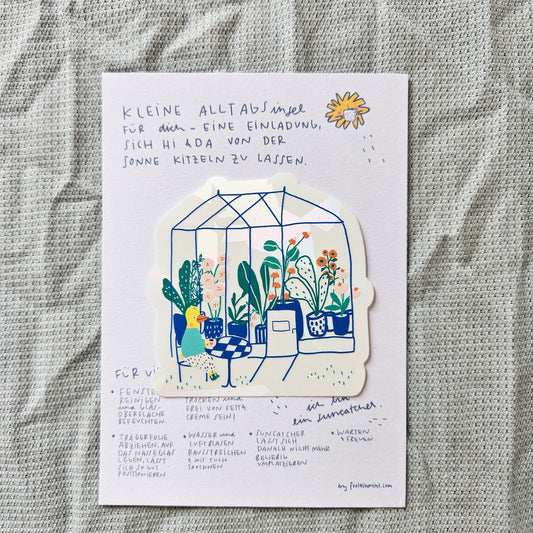 KLEINE ALLTAGSinsel
FÜR dich – EINE EINLADUNG,
SICH HI & DA VON DER
SONNE KITZELN ZU LASSEN.
FÜR
• FENSTER
REINIGEN
und GLAS-
OBERFLÄCHE
BEFEUCHTEN.
TROCKEN und
FREI VON FETT &
CREME SEIN!
ich bin
ein suncatcher.
• TRÄGERFOLIE
ABZIEHEN, AUF
DAS NASSE GLAS
LEGEN, LÄSST
SICH SO GUT
POSITIONIEREN
• WASSER und
LUFTBLASEN
RAUSSTREICHEN
& MIT TUCH
TROCKNEN
• SUNCATCHER
LÄSST SICH
DANACH NICHT MEHR
BELIEBIG
UMPLATZIEREN
• WARTEN
& FREUEN.